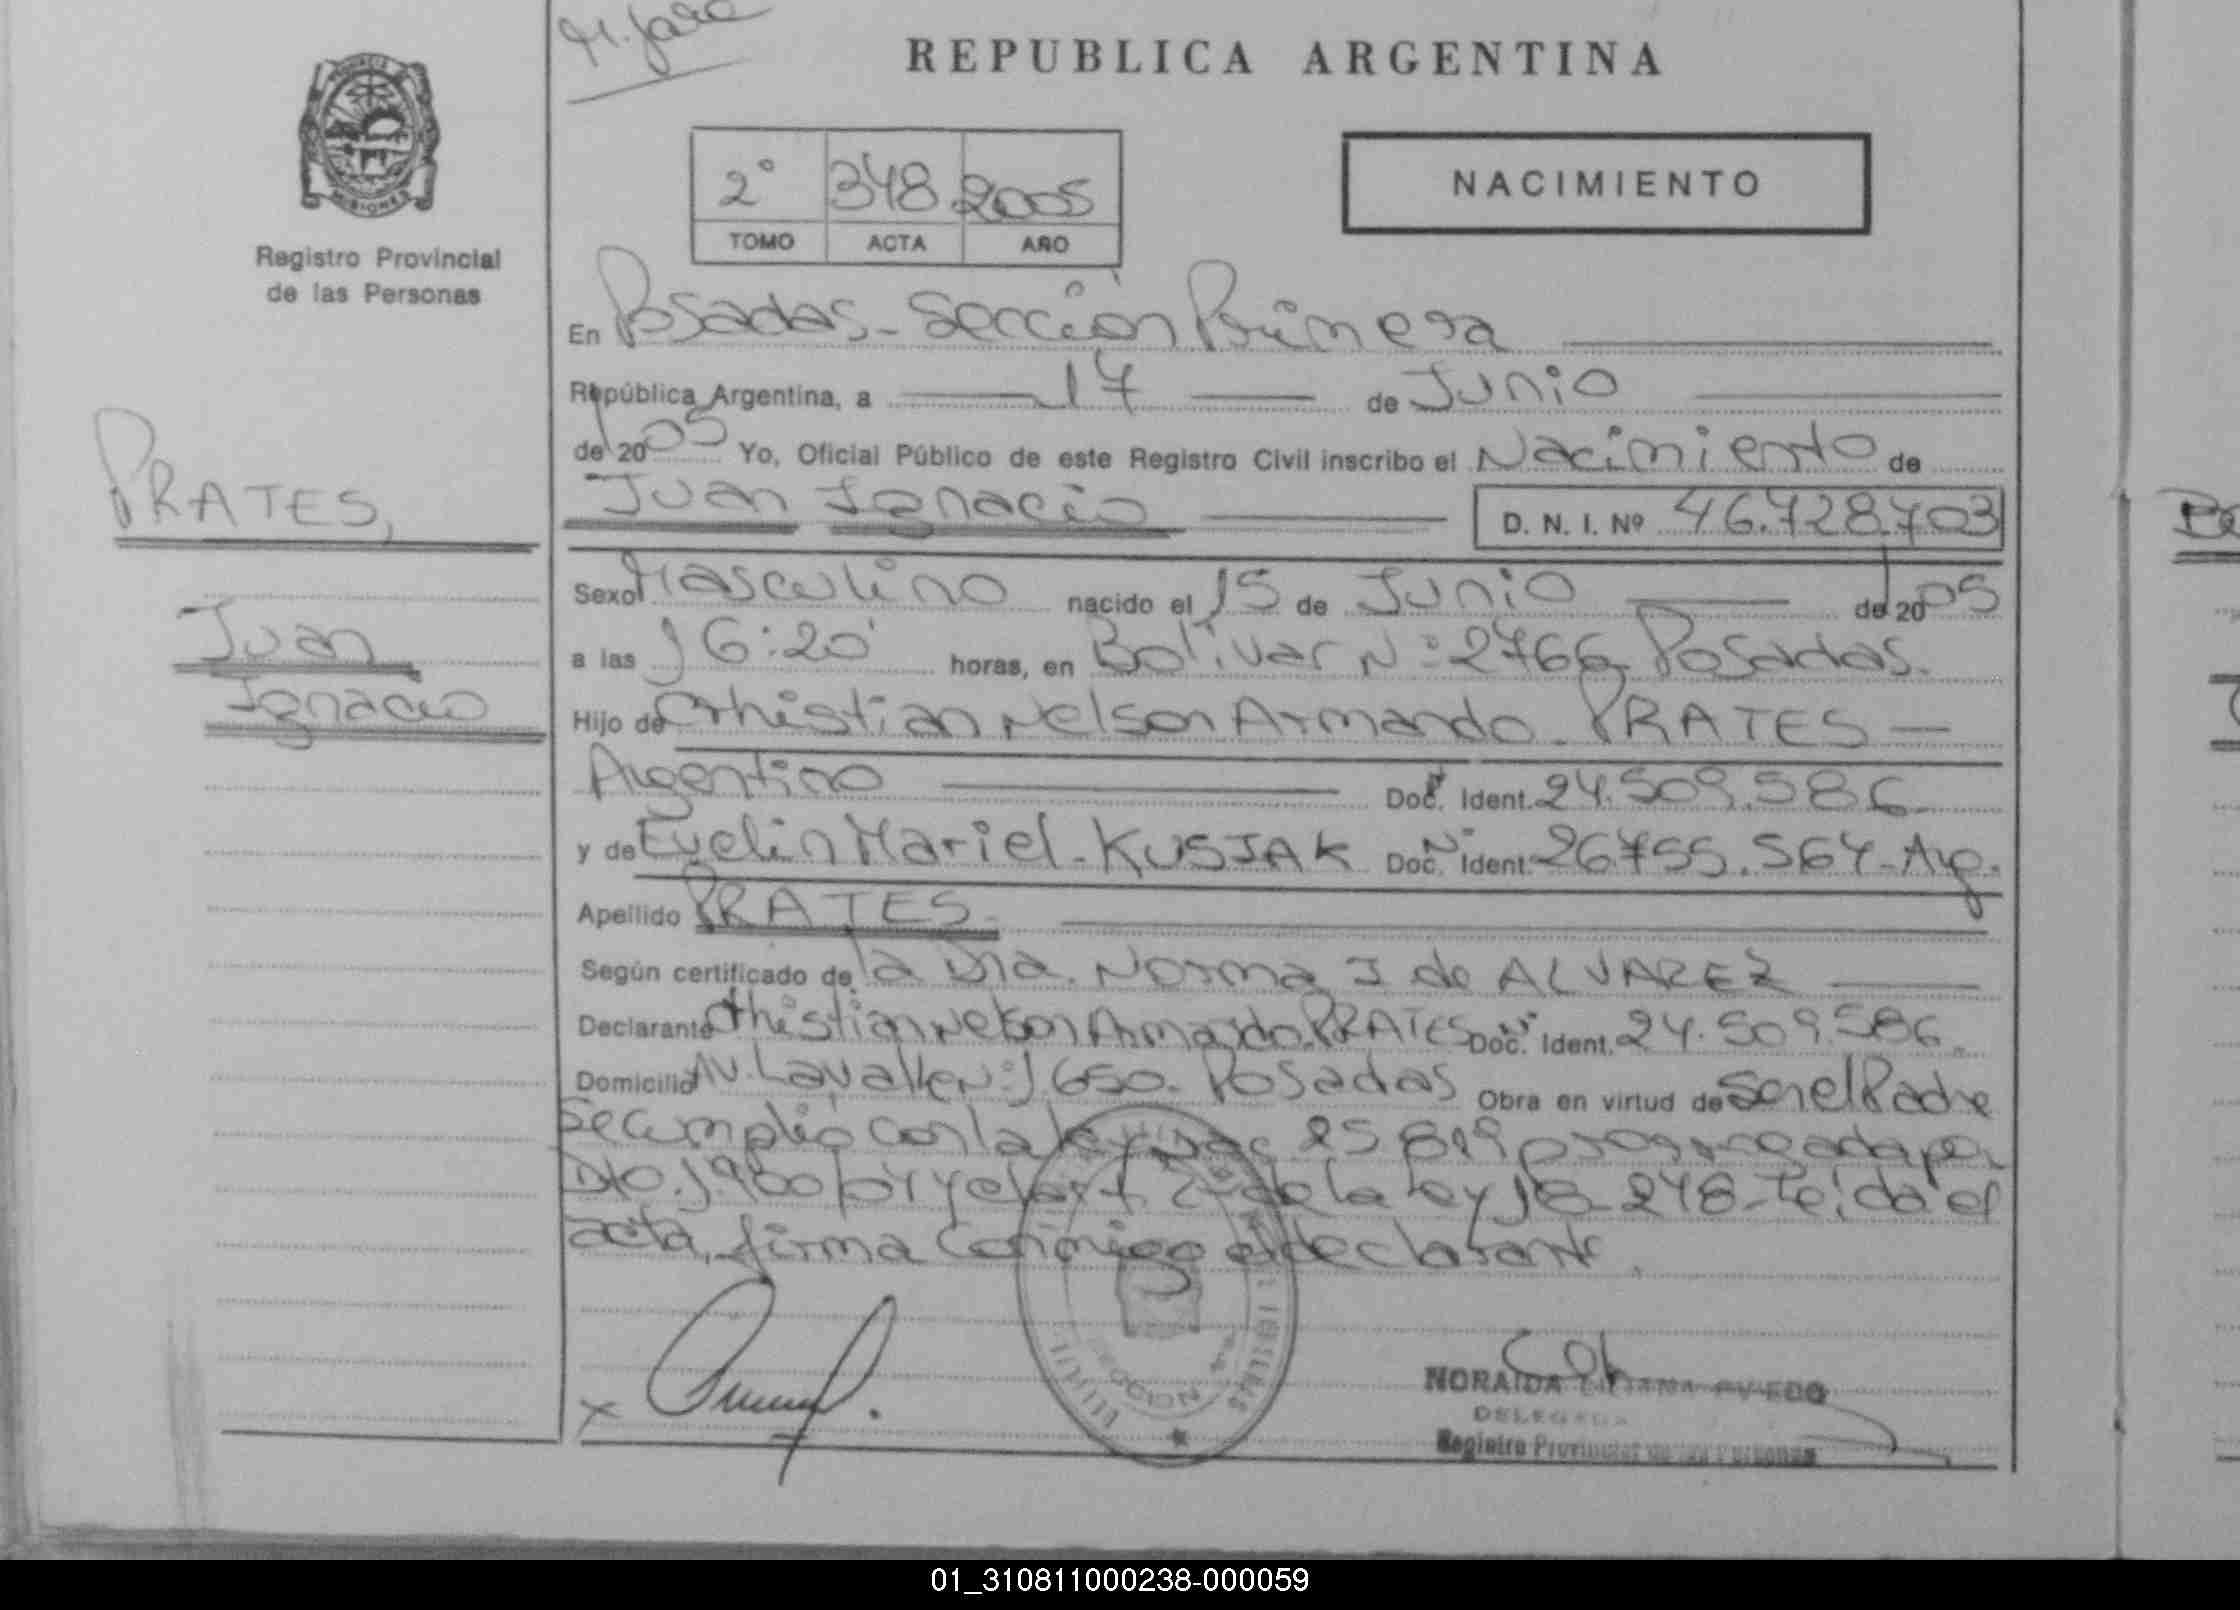 M. Jara
REPUBLICA ARGENTINA
PROVINCIA DE
MISIONES
Registro Provincial
de las Personas
2° 348 2005
TOMO ACTA AÑO
NACIMIENTO
En Posadas - Sección Primera
República Argentina, a 17 de Junio
de 2005 Yo, Oficial Público de este Registro Civil inscribo el Nacimiento de
Juan Ignacio D. N. I. Nº 46.728.703
PRATES,
Juan
Ignacio
Sexo Masculino nacido el 15 de Junio de 2005
a las 16:20 horas, en Bolivar Nº 2766 Posadas.
Hijo de Christian Nelson Armando PRATES
Argentino Doc. Ident. 24.509.586
y de Evelin Mariel - KUSIAK Doc. Ident. 26755.564 - Arg.
Apellido PRATES
Según certificado de la Dra. Norma I de ALVAREZ
Declarante Christian Nelson Armando PRATES Doc. Ident. 24.509.586
Domicilio Av. Lavalle Nº 1650 - Posadas Obra en virtud de Ser el Padre
Se cumplió con la ley nac 25 819 prorrogada por
Dto. 1.900/04 y el art. 27 de la ley 18-248 - Leida el
acta, firma conmigo el declarante.
x
NORAIDA LILIANA OVIEDO
DELEGADA
Registro Provincial de las Personas
01_310811000238-000059